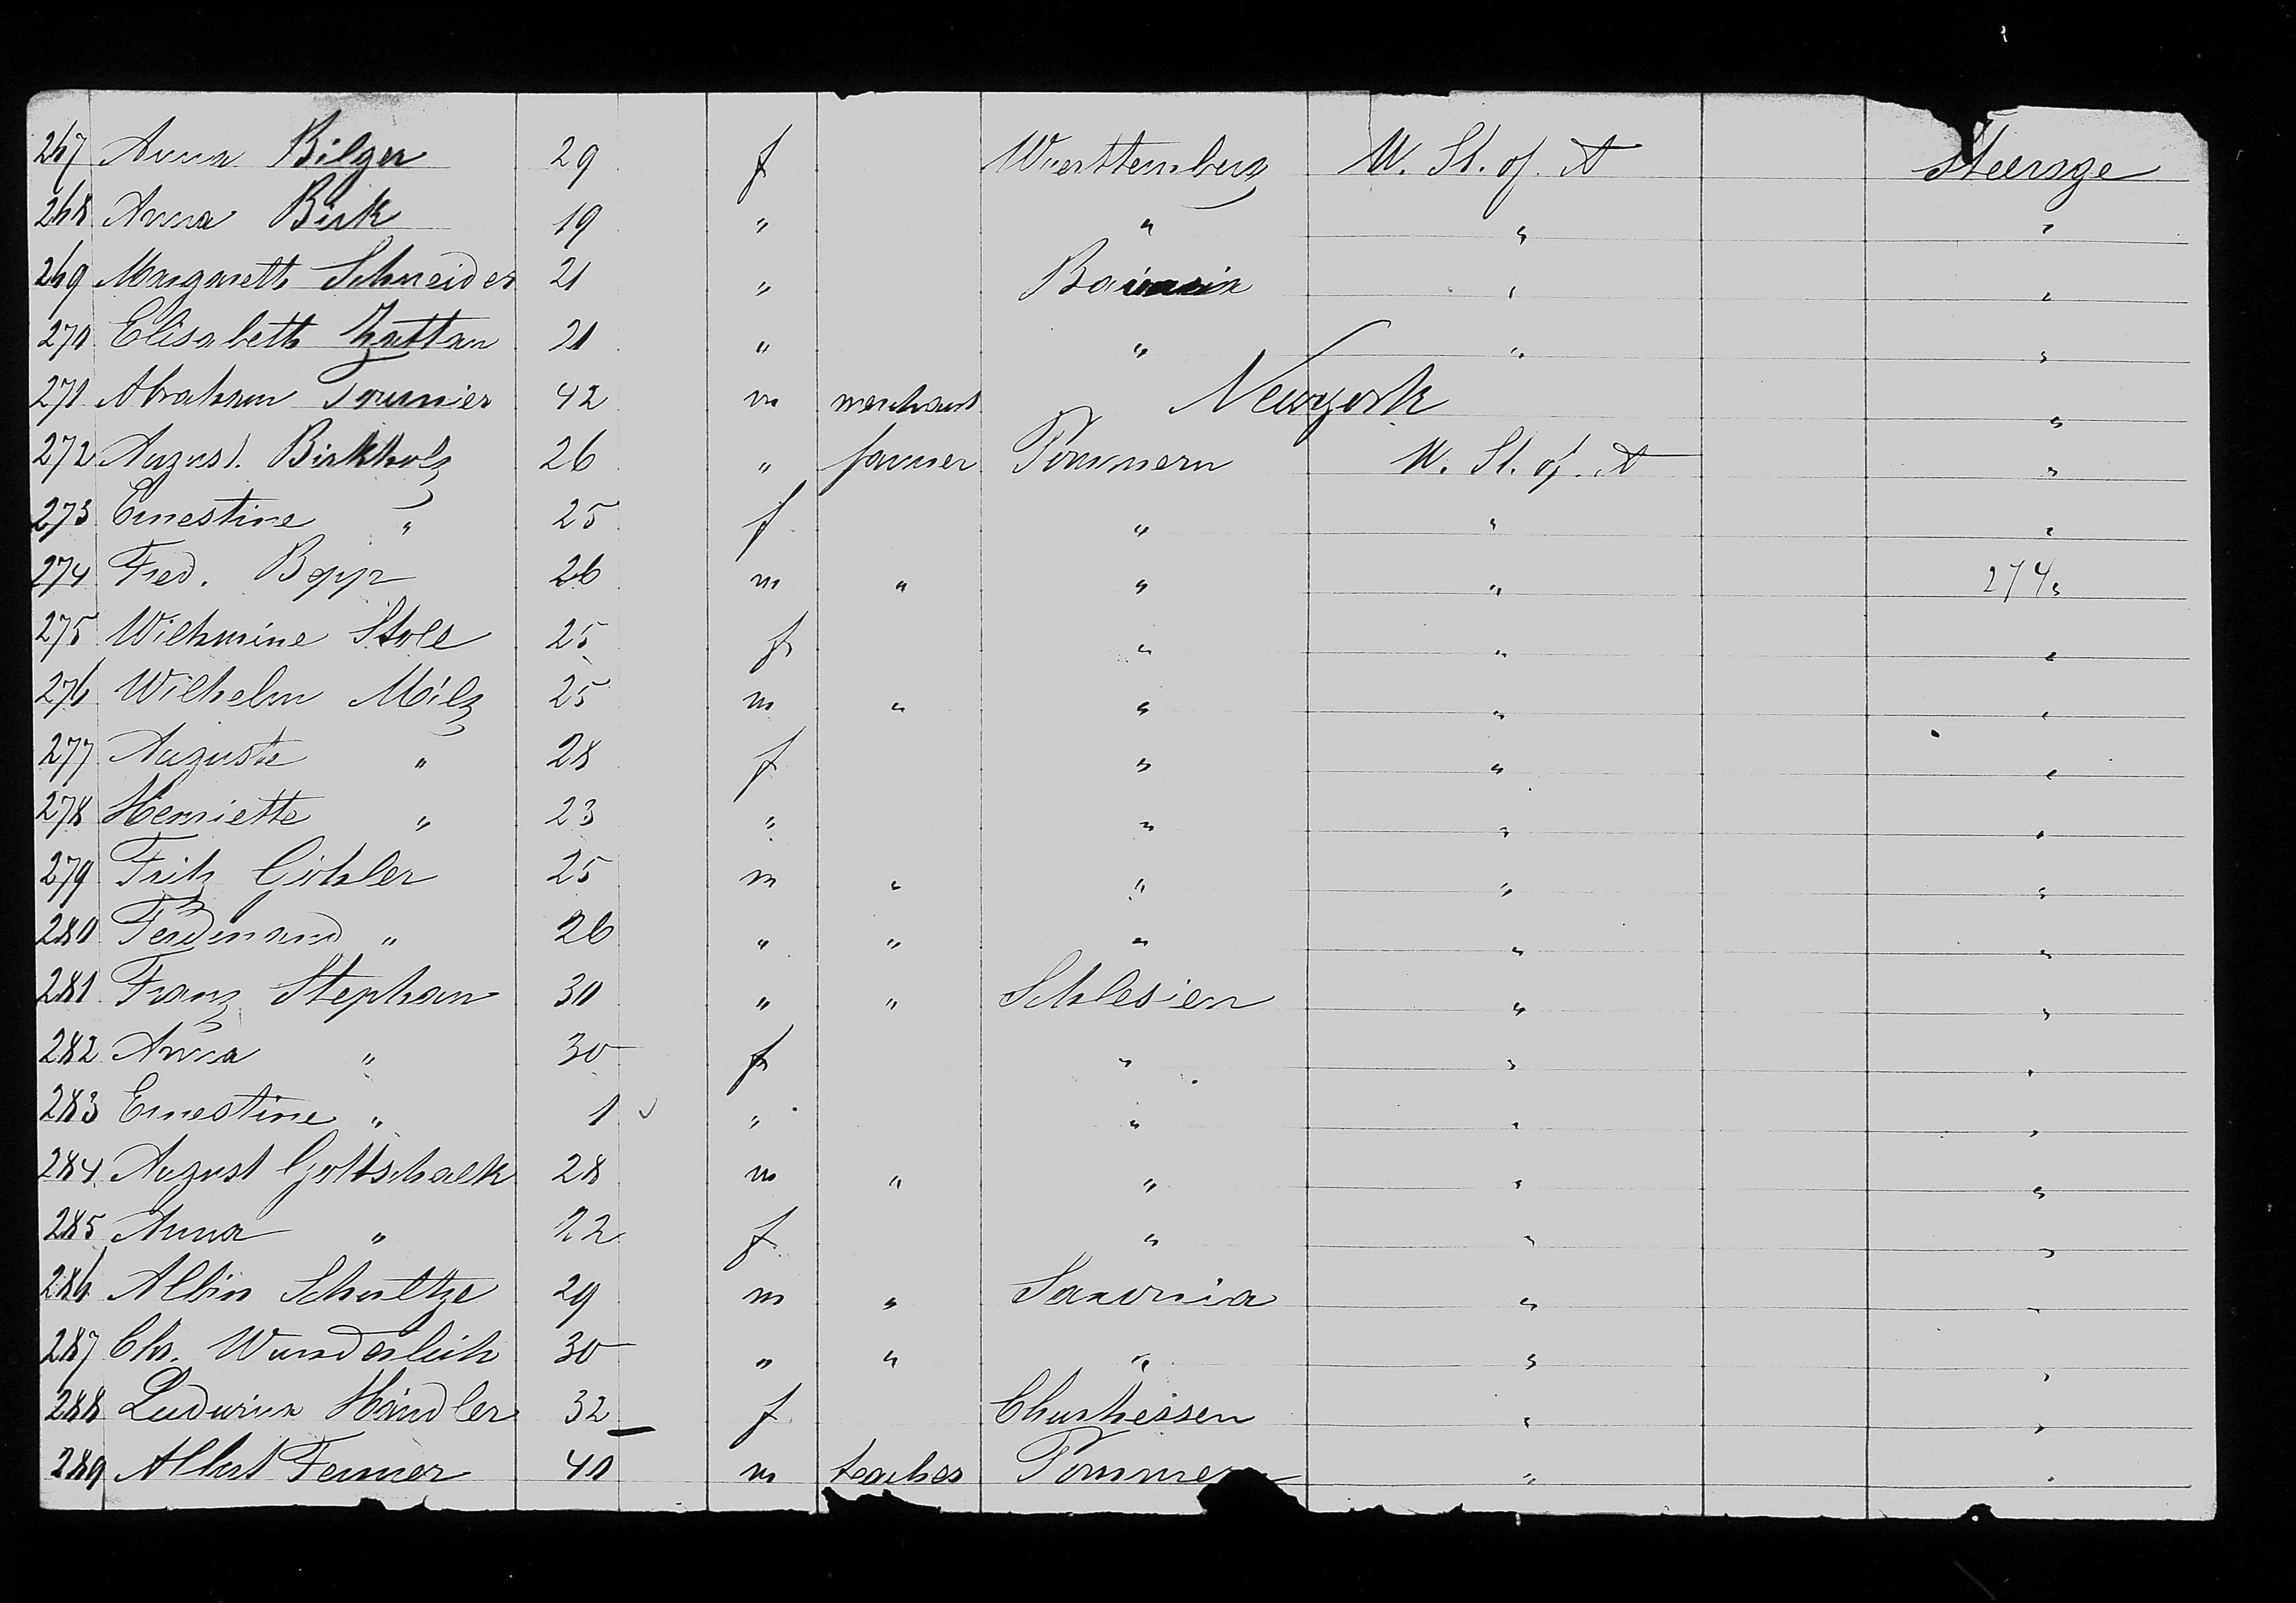 267 Anna Bilger 29 f Wuerttemberg U. St. of. A Steerage
268 Anna Birk 19 " " " "
269 Margareth Schneider 21 " Bavaria " "
270 Elisabeth 21 " " " "
271 Abraham Tournier 42 m merchant Newyork "
272 August. Birkholz 26 " farmer Pommern U. St. of. A "
273 Ernestine " 25 f " " "
274 Fred. Bopp 26 m " " " 274 "
275 Wilhmine Stoll 25 f " " "
276 Wilhelm Milz 25 m " " " "
277 Auguste " 28 f " " "
278 Henriette " 23 " " " "
279 Fritz Göhler 25 m " " " "
280 Ferdinand " 26 " " " " "
281 Franz Stephan 30 " " Schlesien " "
282 Anna " 30 f " " "
283 Ernestine " 1 " " " "
284 August Gottschalk 28 m " " " "
285 Anna " 22 f " " "
286 Albin Schultze 29 m " Saxonia " "
287 Chr. Wunderlich 30 " " " " "
288 Ludwina Händler 32 f Churhessen " "
289 Albert Fenner 40 m teacher Pommern " "